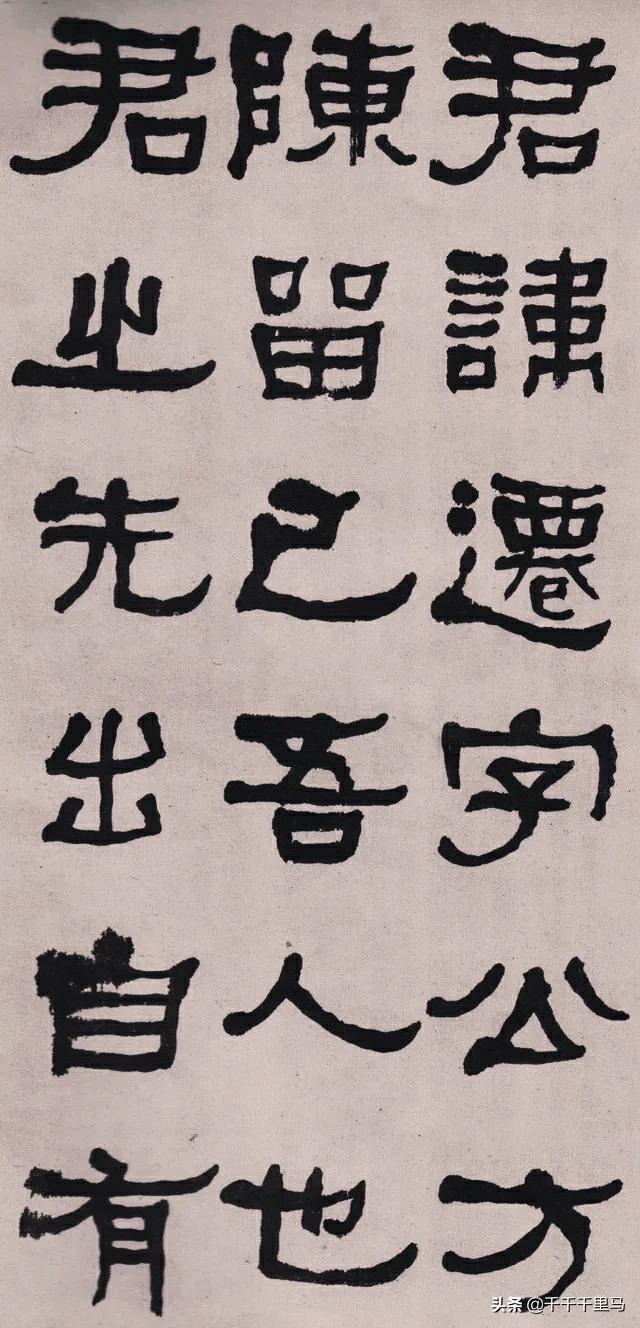 君諱遷字公方
陳留己吾人也
君之先出自有
头条 @千千千里马